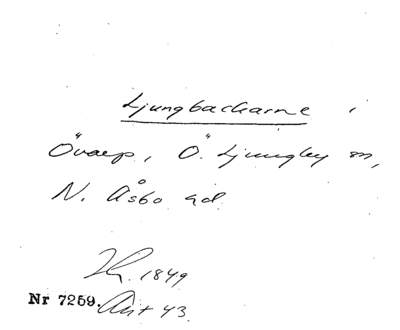 Ljungbackarne i
Övarp, Ö. Ljungby sn,
N. Åsbo hd.
1849
Nr 7259. Akt 43